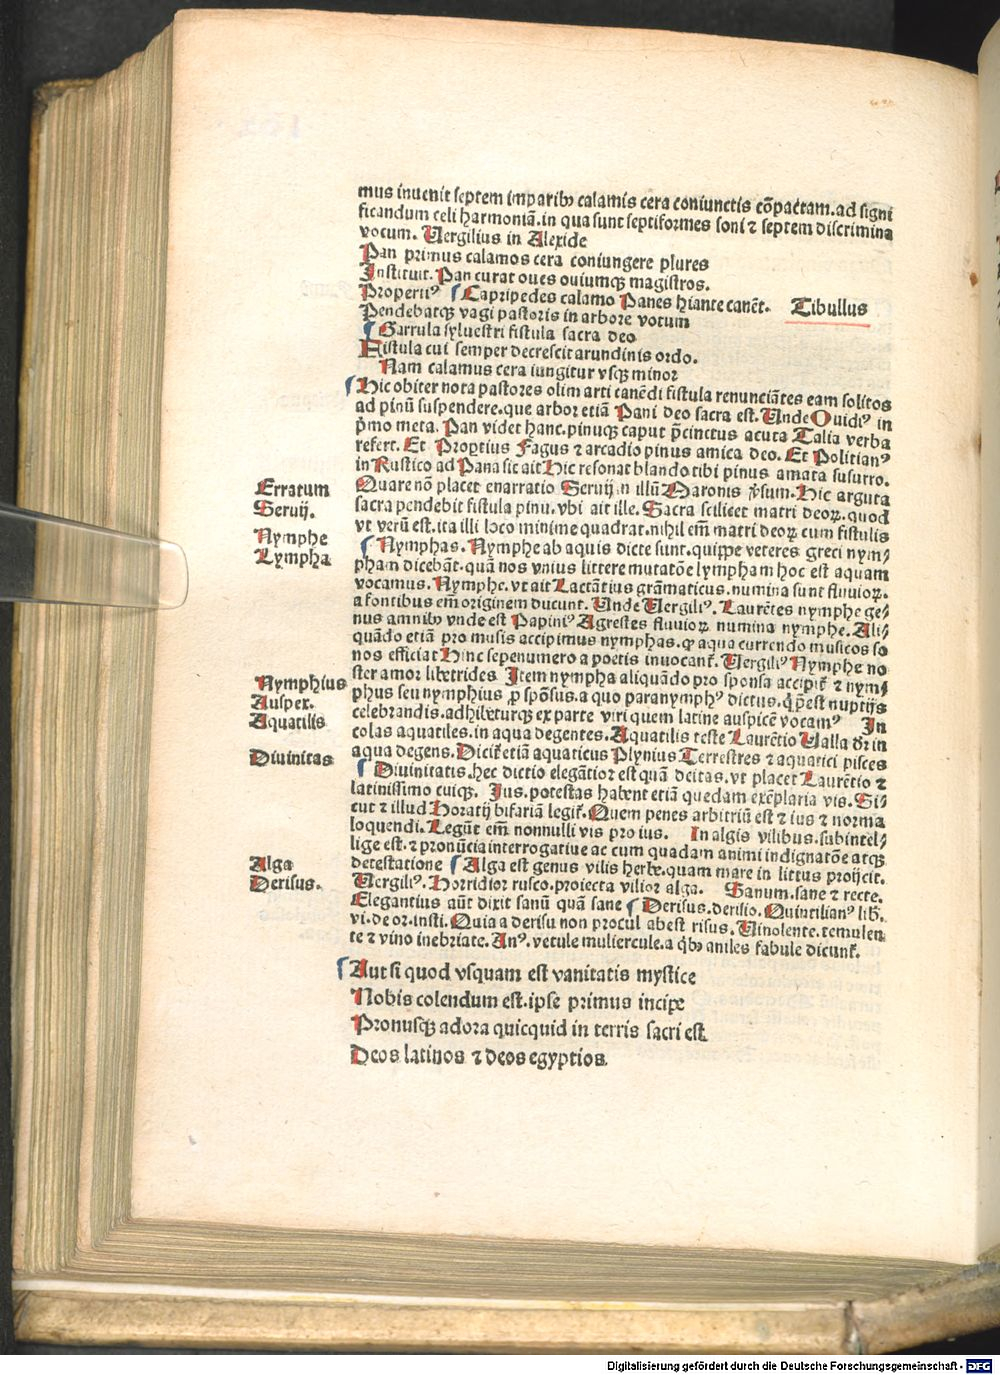 mus inuenit septem imparibꝫ calamis cera coniunctis cōpactam. ad signi
ficandum celi harmoniā. in qua sunt septiformes soni ⁊ septem discrimina
vocum. Vergilius in Alexide
Pan primus calamos cera coniungere plures
Instituit. Pan curat oues ouiumqꝫ magistros.
Propertiꝰ Capripedes calamo Panes hiante canēt. Tibullus
Pendebatqꝫ vagi pastoris in arbore votum
Garrula syluestri fistula sacra deo
Fistula cui semper decrescit arundinis ordo.
Nam calamus cera iungitur vsqꝫ minor
Hic obiter nota pastores olim arti canēdi fistula renunciātes eam solitos
ad pinū suspendere. que arbor etiā Pani deo sacra est. Vnde Ouidiꝰ in
pͥmo meta. Pan videt hanc. pinuqꝫ caput p̄cinctus acuta Talia verba
refert. Et Propͥtius Fagus ⁊ arcadio pinus amica deo. Et Politianꝰ
in Rustico ad Pana sic ait Hic resonat blando tibi pinus amata susurro.
Erratum Quare nō placet enarratio Seruij in illū Maronis v̓sum. Hic arguta
Seruij. sacra pendebit fistula pinu. vbi ait ille. Sacra scilicet matri deoꝝ. quod
vt verū est. ita illi loco minime quadrat. nihil em̄ matri deoꝝ cum fistulis
Nymphe Nymphas. Nymphe ab aquis dicte sunt. quippe veteres greci nym⸗
Lympha phan dicebāt. quā nos vnius littere mutatōe lympham hoc est aquam
vocamus. Nymphe. vt ait Lactātius grāmaticus. numina sunt fluuioꝝ.
a fontibus em̄ originem ducunt. Vnde Vergiliꝰ. Laurētes nymphe ge⸗
nus amnibꝫ vnde est Papiniꝰ Agrestes fluuioꝝ numina nymphe. Ali⸗
quādo etiā pro musis accipimus nymphas. ꝙ aqua currendo musicos so
nos efficiat Hinc sepenumero a poetis inuocant᷑. Vergiliꝰ Nymphe no
ster amor libetrides Item nympha aliquādo pro sponsa accipit᷑ ⁊ nym⸗
Nymphius phus seu nymphius ꝓ spōsus. a quo paranymphꝰ dictus. q̇ p̄est nuptijs
Auspex. celebrandis. adhibeturqꝫ ex parte viri quem latine auspicē vocamꝰ In
Aquatilis colas aquatiles. in aqua degentes. Aquatilis teste Laurētio Valla dr̄ in
aqua degens. Dicit᷑ etiā aquaticus Plynius Terrestres ⁊ aquatici pisces
Diuinitas Diuinitatis. hec dictio elegātior est quā deitas. vt placet Laurētio ⁊
latinissimo cuiqꝫ. Jus. potestas habent etiā quedam exēplaria vis. Si⸗
cut ⁊ illud Horatij bifariā legit᷑. Quem penes arbitriū est ⁊ ius ⁊ norma
loquendi. Legūt em̄ nonnulli vis pro ius. In algis vilibus. subintel⸗
lige est. ⁊ pronūcia interrogatiue ac cum quadam animi indignatōe atqꝫ
Alga detestatione Alga est genus vilis herbe. quam mare in littus proijcit.
Derisus. Vergiliꝰ. Horridior rusco. proiecta vilior alga. Sanum. sane ⁊ recte.
Elegantius aūt dixit sanū quā sane Derisus. derisio. Quintilianꝰ lib̄.
vi. de or. insti. Quia a derisu non procul abest risus. Vinolente. temulen
te ⁊ vino inebriate. Anꝰ. vetule muliercule. a q̇bꝫ aniles fabule dicunt᷑.
Aut si quod vsquam est vanitatis mystice
Nobis colendum est. ipse primus incipe
Pronusqꝫ adora quicquid in terris sacri est
Deos latinos ⁊ deos egyptios.
Digitalisierung gefördert durch die Deutsche Forschungsgemeinschaft - DFG